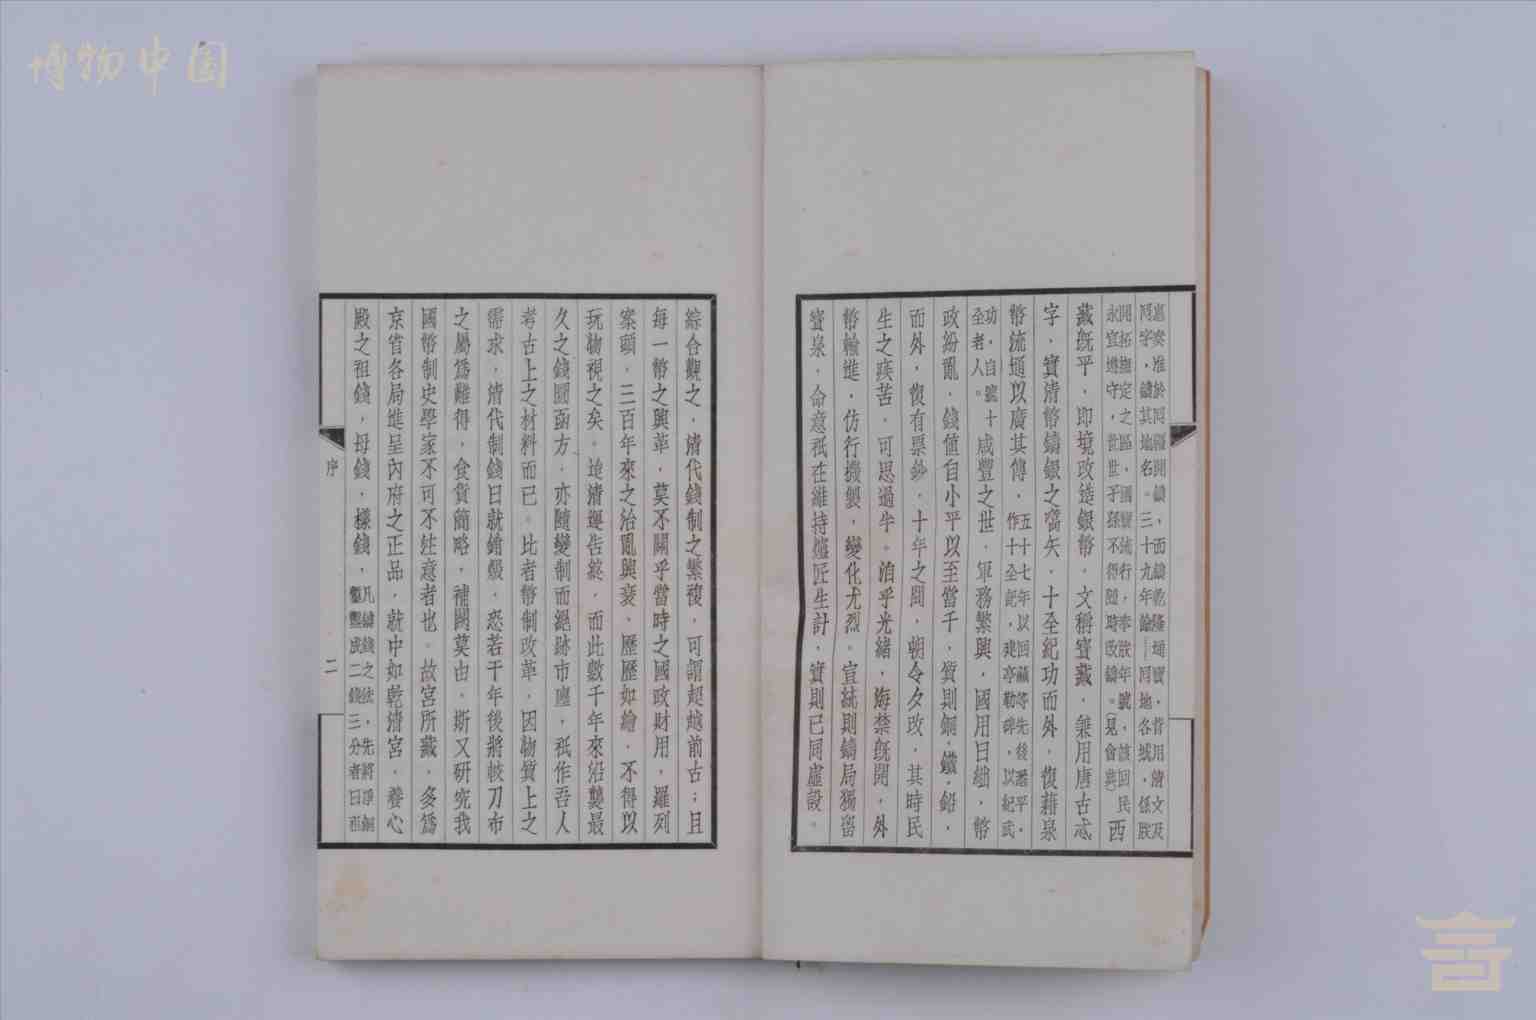 博物中国
裏奏准於同疆開鑄，面鑄乾隆通寶，背用清文及
同字，鑄其地名。三十九年諭——同地各城，係朕
開拓撫定之區，國寶流行，奉朕年號，該回民
永宜遵守，世世子孫不得隨時改鑄。(見會典)西
藏既平，即境改造銀幣，文稱寶藏，兼用唐古忒
字，實清幣鑄銀之嚆矢。十全紀功而外，復藉泉
幣流通以廣其傳，五十七年以回藏等先後盪平，
作十全記，建亭勒碑，以紀武
功，自號十
全老人。咸豐之世，軍務繁興，國用日絀，幣
政紛亂，錢值自小平以至當千，質則銅，鐵，鉛，
而外，復有票鈔，十年之間，朝令夕改，其時民
生之疾苦，可思過半。洎乎光緒，海禁既開，外
幣輸進，仿行機製，變化尤烈。宣統則鑄局獨留
寶泉，命意祇在維持爐匠生計，實則已同虛設。
綜合觀之，清代錢制之繁複，可謂超越前古；且
每一幣之興革，莫不關乎當時之國政財用，羅列
案頭，三百年來之治亂興衰，歷歷如繪，不得以
玩物視之矣。迨清運告終，而此數千年來沿襲最
久之錢圜函方，亦隨變制而絕跡市廛，祇作吾人
考古上之材料而已。比者幣制改革，因物質上之
需求，清代制錢日就銷燬，恐若干年後將較刀布
之屬為難得，食貨簡略，補闕莫由，斯又研究我
國幣制史學家不可不注意者也。故宮所藏，多為
京省各局進呈內府之正品，就中如乾清宮，養心
殿之祖錢，母錢，樣錢，凡鑄錢之法，先將淨銅
鏨鑿成二錢三分者曰祖
序
二